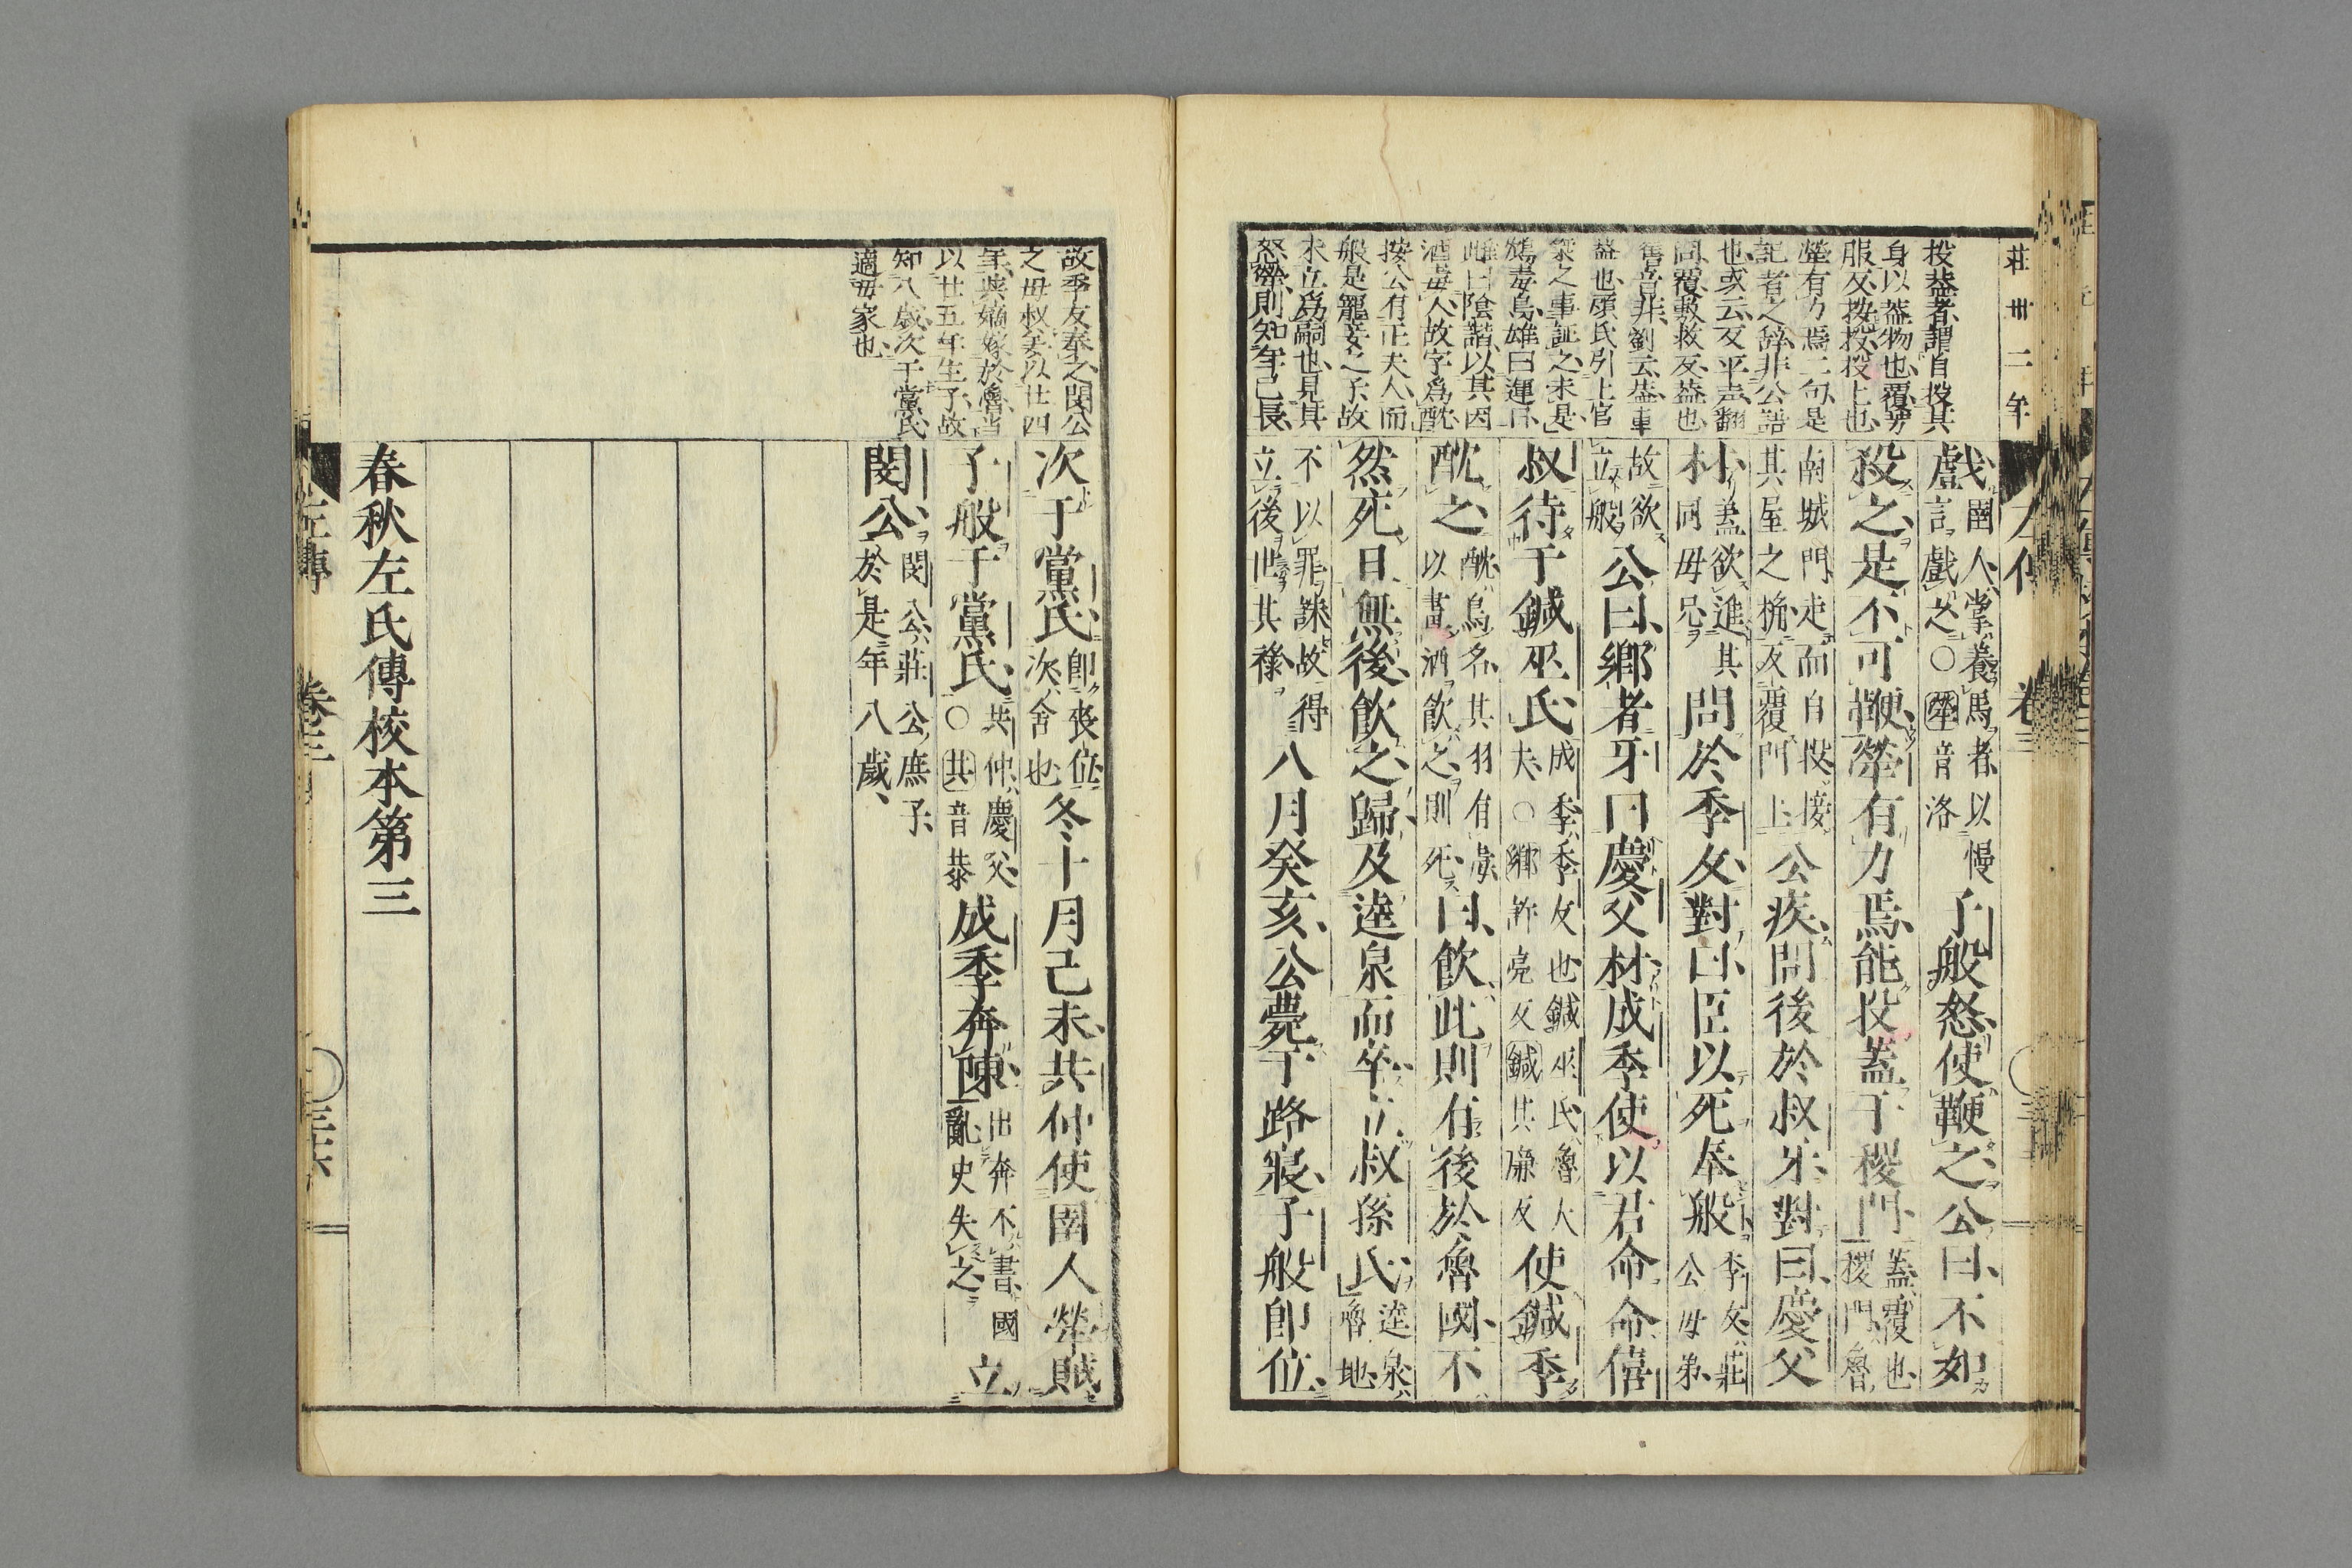 莊卅二年
投蓋者謂自投其
身以蓋物也覆旁
服反按投投上也
犖有力焉二句是
記者之辭非公語
也或云反平声翻
同覆敷救反蓋也
舊音非劉云蓋車
蓋也顧氏引上官
桀之事証之未是
鴆毒鳥雄曰運日
雌曰陰諧以其因
酒毒人故字爲酖
按公有正夫人而
般是寵妾之子故
未立爲嗣也見其
怒犖則知年已長
戲圉人掌養馬者以慢言戲之○犖音洛子般怒使鞭之公曰不如
殺之是不可鞭犖有力焉能投蓋于稷門蓋覆也稷門魯
南城門走而自投接其屋之桷反覆門上公疾問後於叔牙對曰慶父
材蓋欲進其同母兄問於季友對曰臣以死奉般季友莊公母弟
故欲立般公曰鄉者牙曰慶父材成季使以君命命僖
叔待于鍼巫氏成季季友也鍼巫氏魯大夫○鄉許亮反鍼其廉反使鍼季
酖之酖鳥名其羽有毒以畫酒飲之則死曰飲此則有後於魯國不
然死且無後飲之歸及逵泉而卒立叔孫氏逵泉魯地
不以罪誅故得立後世其祿八月癸亥公薨于路寢子般即位
左傳 卷三
故季友奉之閔公
之母叔姜以廿四
年與嫡嫁於魯當
以廿五年生子故
知八歲次于黨氏
適母家也
次于黨氏即喪位次舍也冬十月己未共仲使圉人犖賊
子般于黨氏共仲慶父○共音恭成季奔陳出奔不書國亂史失之立
閔公閔公莊公庶子於是年八歲
春秋左氏傳校本第三
左傳 卷三 三六